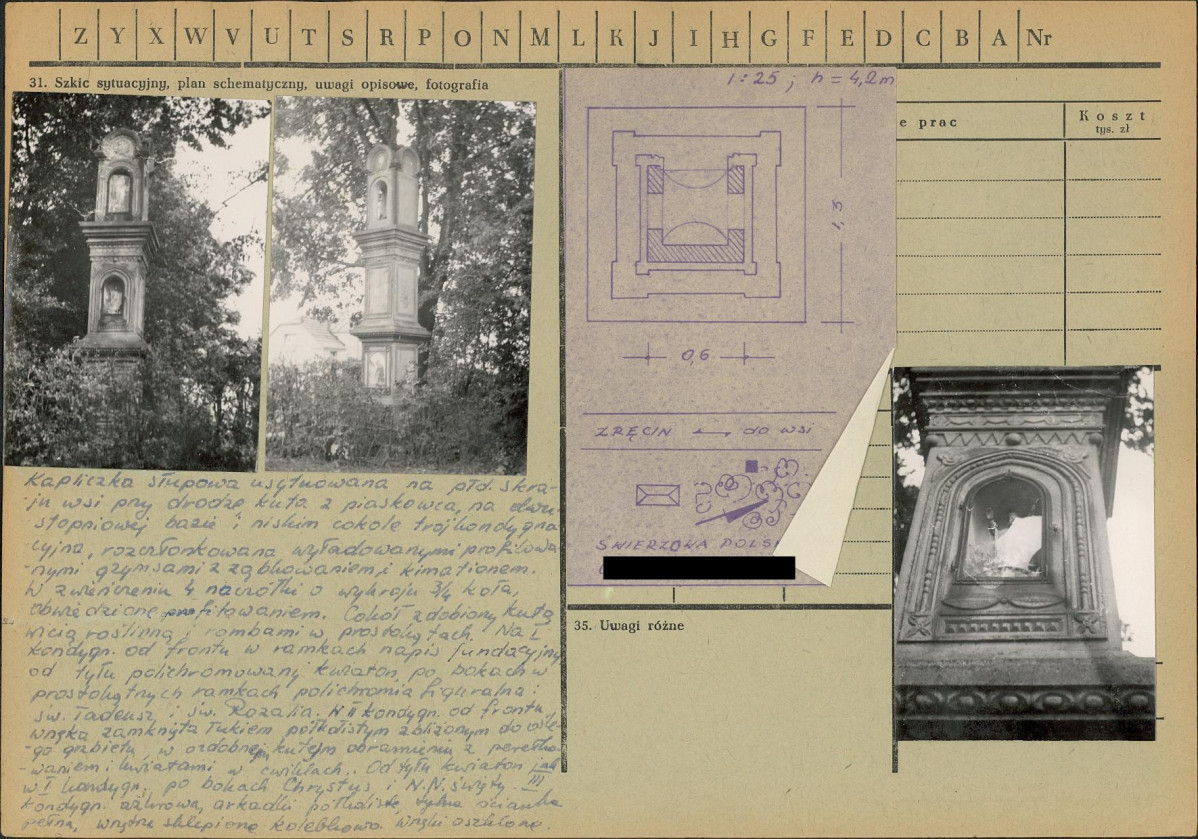 Z Y X W V U T S R P O N M L K J I H G F E D C B A Nr
31. Szkic sytuacyjny, plan schematyczny, uwagi opisowe, fotografia
1:25 ; h = 4,2m
1,3
0,6
ZRĘCIN do wsi
ŚWIERZOWA POLSK
e prac
Koszt
tys. zł
Kapliczka słupowa usytuowana na płd. skra-
-ju wsi przy drodze kuta z piaskowca, na dwu-
-stopniowej bazie i niskim cokole trójkondygna-
-cyjna, rozczłonkowana wyładowanymi profilowa-
-nymi gzymsami z ząbkowaniem i kimationem.
W zwieńczeniu 4 naczółki o wykroju 3/4 koła,
obwiedzione profilowaniem. Cokół zdobiony kutą
wicią roślinną i rombami w prostokątach. Na I
kondygn. od frontu w ramkach napis fundacyjny
od tyłu polichromowany kwiaton, po bokach w
prostokątnych ramkach polichromia figuralna:
św. Tadeusz i św. Rozalia. W II kondygn. od frontu
wnęka zamknięta łukiem półkolistym zbliżonym do ośle-
-go grzbietu, w ozdobnym kutym obramieniu z perełko-
-waniem i kwiatami w cwiklach. Od tyłu kwiaton jak
w I kondygn, po bokach Chrystus i N.N. święty. III
kondygn. ażurowa, arkadki półkoliste, tylna ścianka
pełna, wnętrze sklepione kolebkowo. Wnęki oszklone.
35. Uwagi różne